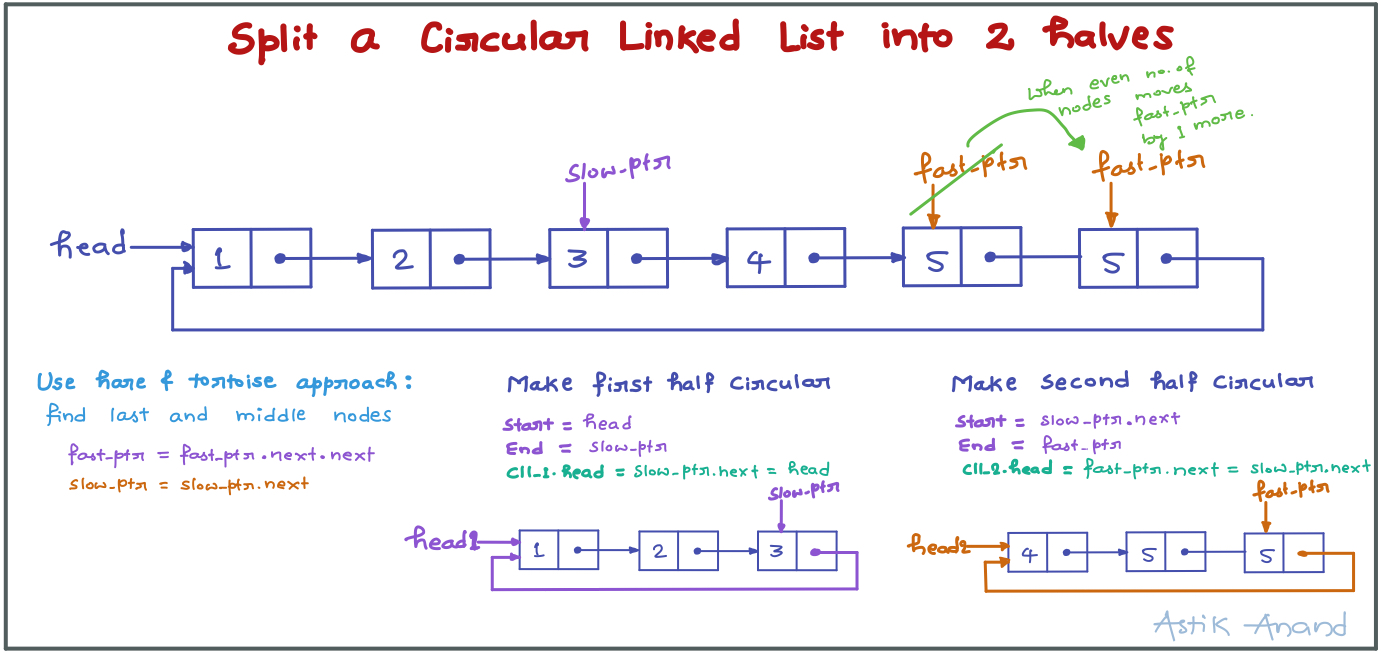 Split a Circular Linked List into 2 halves
When even no. of
nodes moves
fast_ptr
by 1 more.
slow_ptr
fast_ptr
fast_ptr
head
1
2
3
4
5
5
Use hare & tortoise approach:
find last and middle nodes
fast_ptr = fast_ptr.next.next
slow_ptr = slow_ptr.next
Make first half Circular
Start = head
End = slow_ptr
Cll_1.head = slow_ptr.next = head
slow_ptr
head1
1
2
3
Make second half Circular
Start = slow_ptr.next
End = fast_ptr
Cll_2.head = fast_ptr.next = slow_ptr.next
fast_ptr
head2
4
5
5
Astik Anand